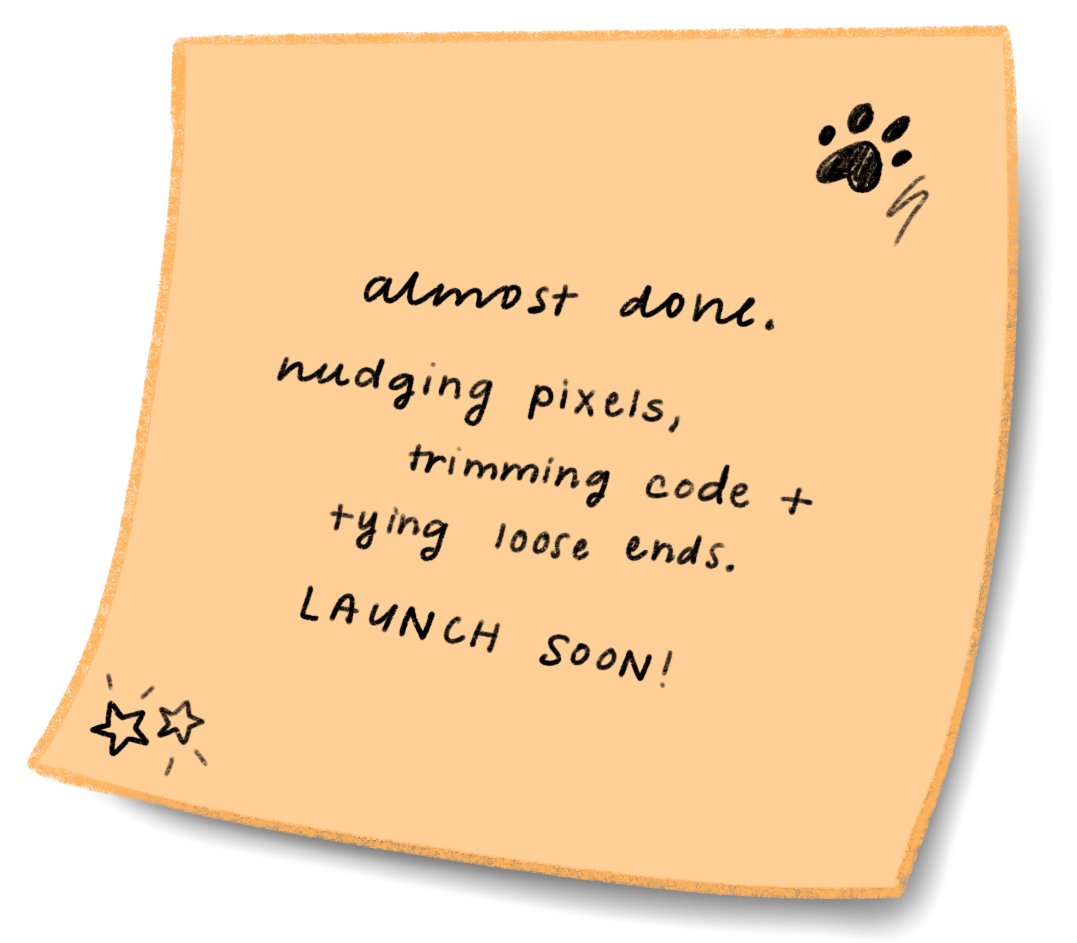 almost done.
nudging pixels,
trimming code +
tying loose ends.
LAUNCH SOON!